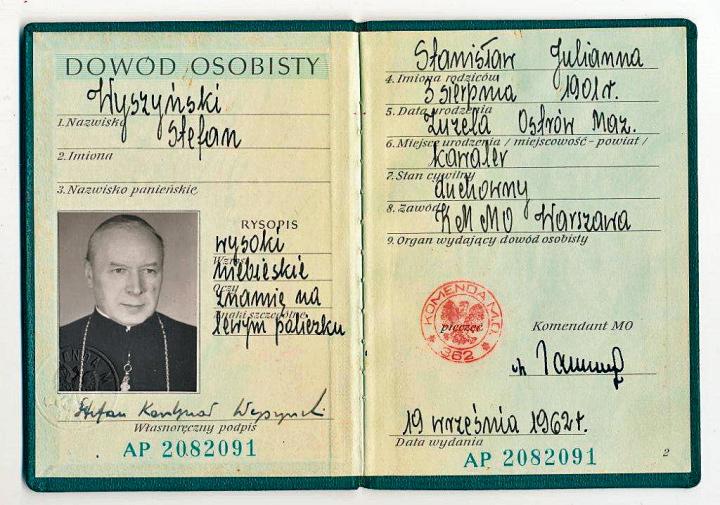 DOWÓD OSOBISTY
Wyszyński
1. Nazwisko
Stefan
2. Imiona
3. Nazwisko panieńskie
RYSOPIS
wysoki
Wzrost
niebieskie
Oczy
znamię na
Znaki szczególne
lewym policzku
Stefan Kardynał Wyszyński
Własnoręczny podpis
AP 2082091
Stanisław Julianna
4. Imiona rodziców
3 sierpnia 1901 r.
5. Data urodzenia
Zuzela Ostrów Maz.
6. Miejsce urodzenia / miejscowość - powiat /
kawaler
7. Stan cywilny
duchowny
8. Zawód
KMMO Warszawa
9. Organ wydający dowód osobisty
KOMENDA M.O.
362
pieczęć
Komendant MO
19 września 1962 r.
Data wydania
AP 2082091
2